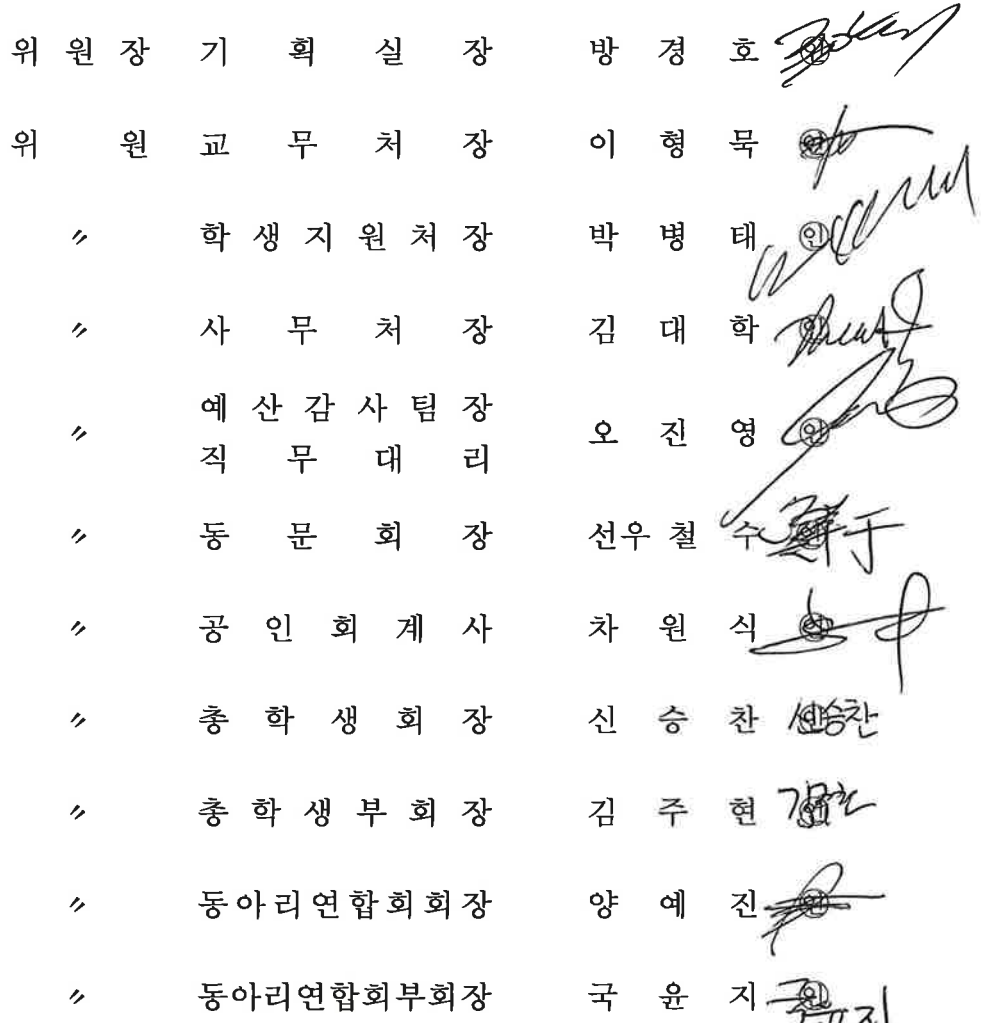 위 원 장 기 획 실 장 방 경 호 ㊞
위 원 교 무 처 장 이 형 묵 ㊞
〃 학 생 지 원 처 장 박 병 태 ㊞
〃 사 무 처 장 김 대 학 ㊞
〃 예 산 감 사 팀 장
직 무 대 리 오 진 영 ㊞
〃 동 문 회 장 선우 철 수 ㊞ 鮮于
〃 공 인 회 계 사 차 원 식 ㊞
〃 총 학 생 회 장 신 승 찬 ㊞ 신승찬
〃 총 학 생 부 회 장 김 주 현 ㊞
〃 동아리연합회회장 양 예 진 ㊞
〃 동아리연합회부회장 국 윤 지 ㊞